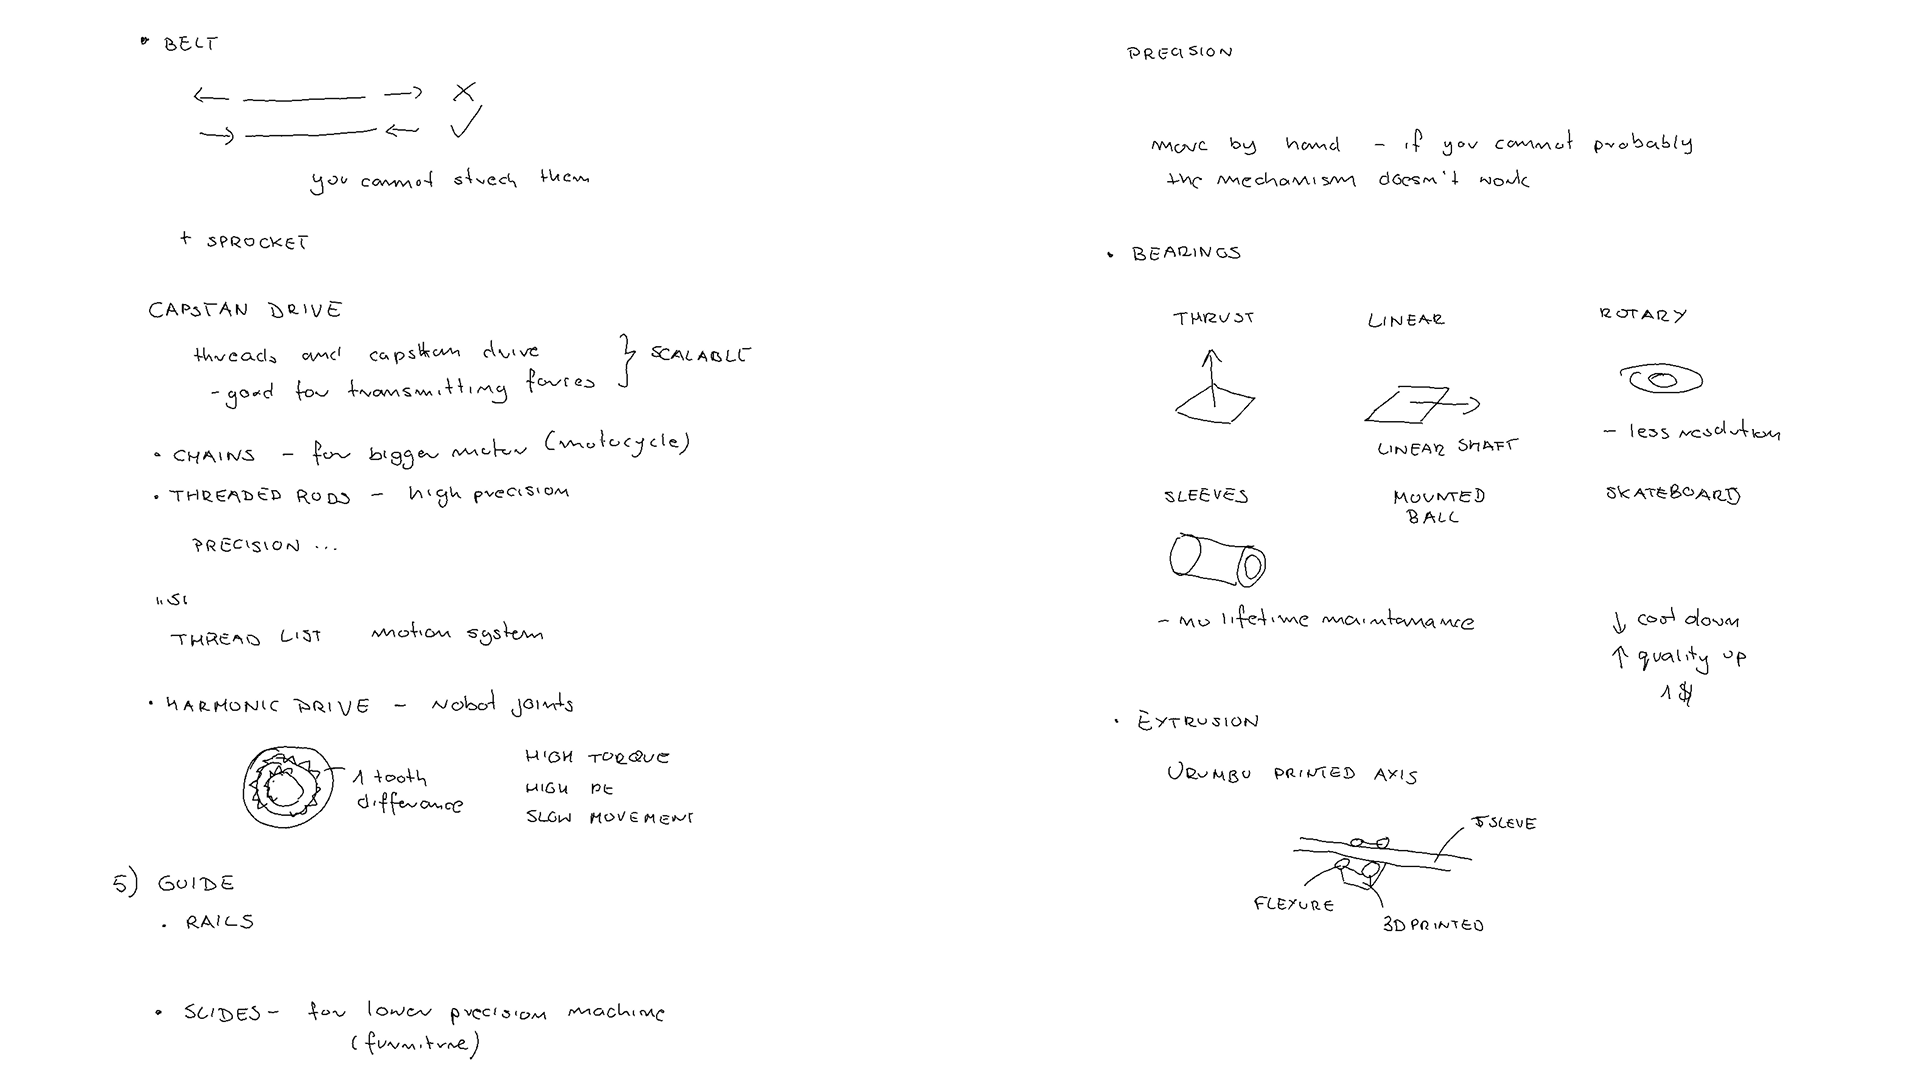 • BELT
you cannot strech them
+ SPROCKET
CAPSTAN DRIVE
threads and capstan drive
- good for transmitting forces
SCALABLE
• CHAINS - for bigger motor (motocycle)
• THREADED RODS - high precision
PRECISION ...
THREAD LIST motion system
• HARMONIC DRIVE - robot joints
1 tooth
differance
HIGH TORQUE
HIGH PE
SLOW MOVEMENT
5) GUIDE
• RAILS
• SLIDES - for lower precision machine
(furniture)
PRECISION
move by hand - if you cannot probably
the mechanism doesn't work
• BEARINGS
THRUST
LINEAR
ROTARY
LINEAR SHAFT
- less resolution
SLEEVES
MOUNTED
BALL
SKATEBOARD
- no lifetime maintanance
↓ cost down
↑ quality up
1$
• EXTRUSION
URUMBU PRINTED AXIS
SLEVE
FLEXURE
3D PRINTED